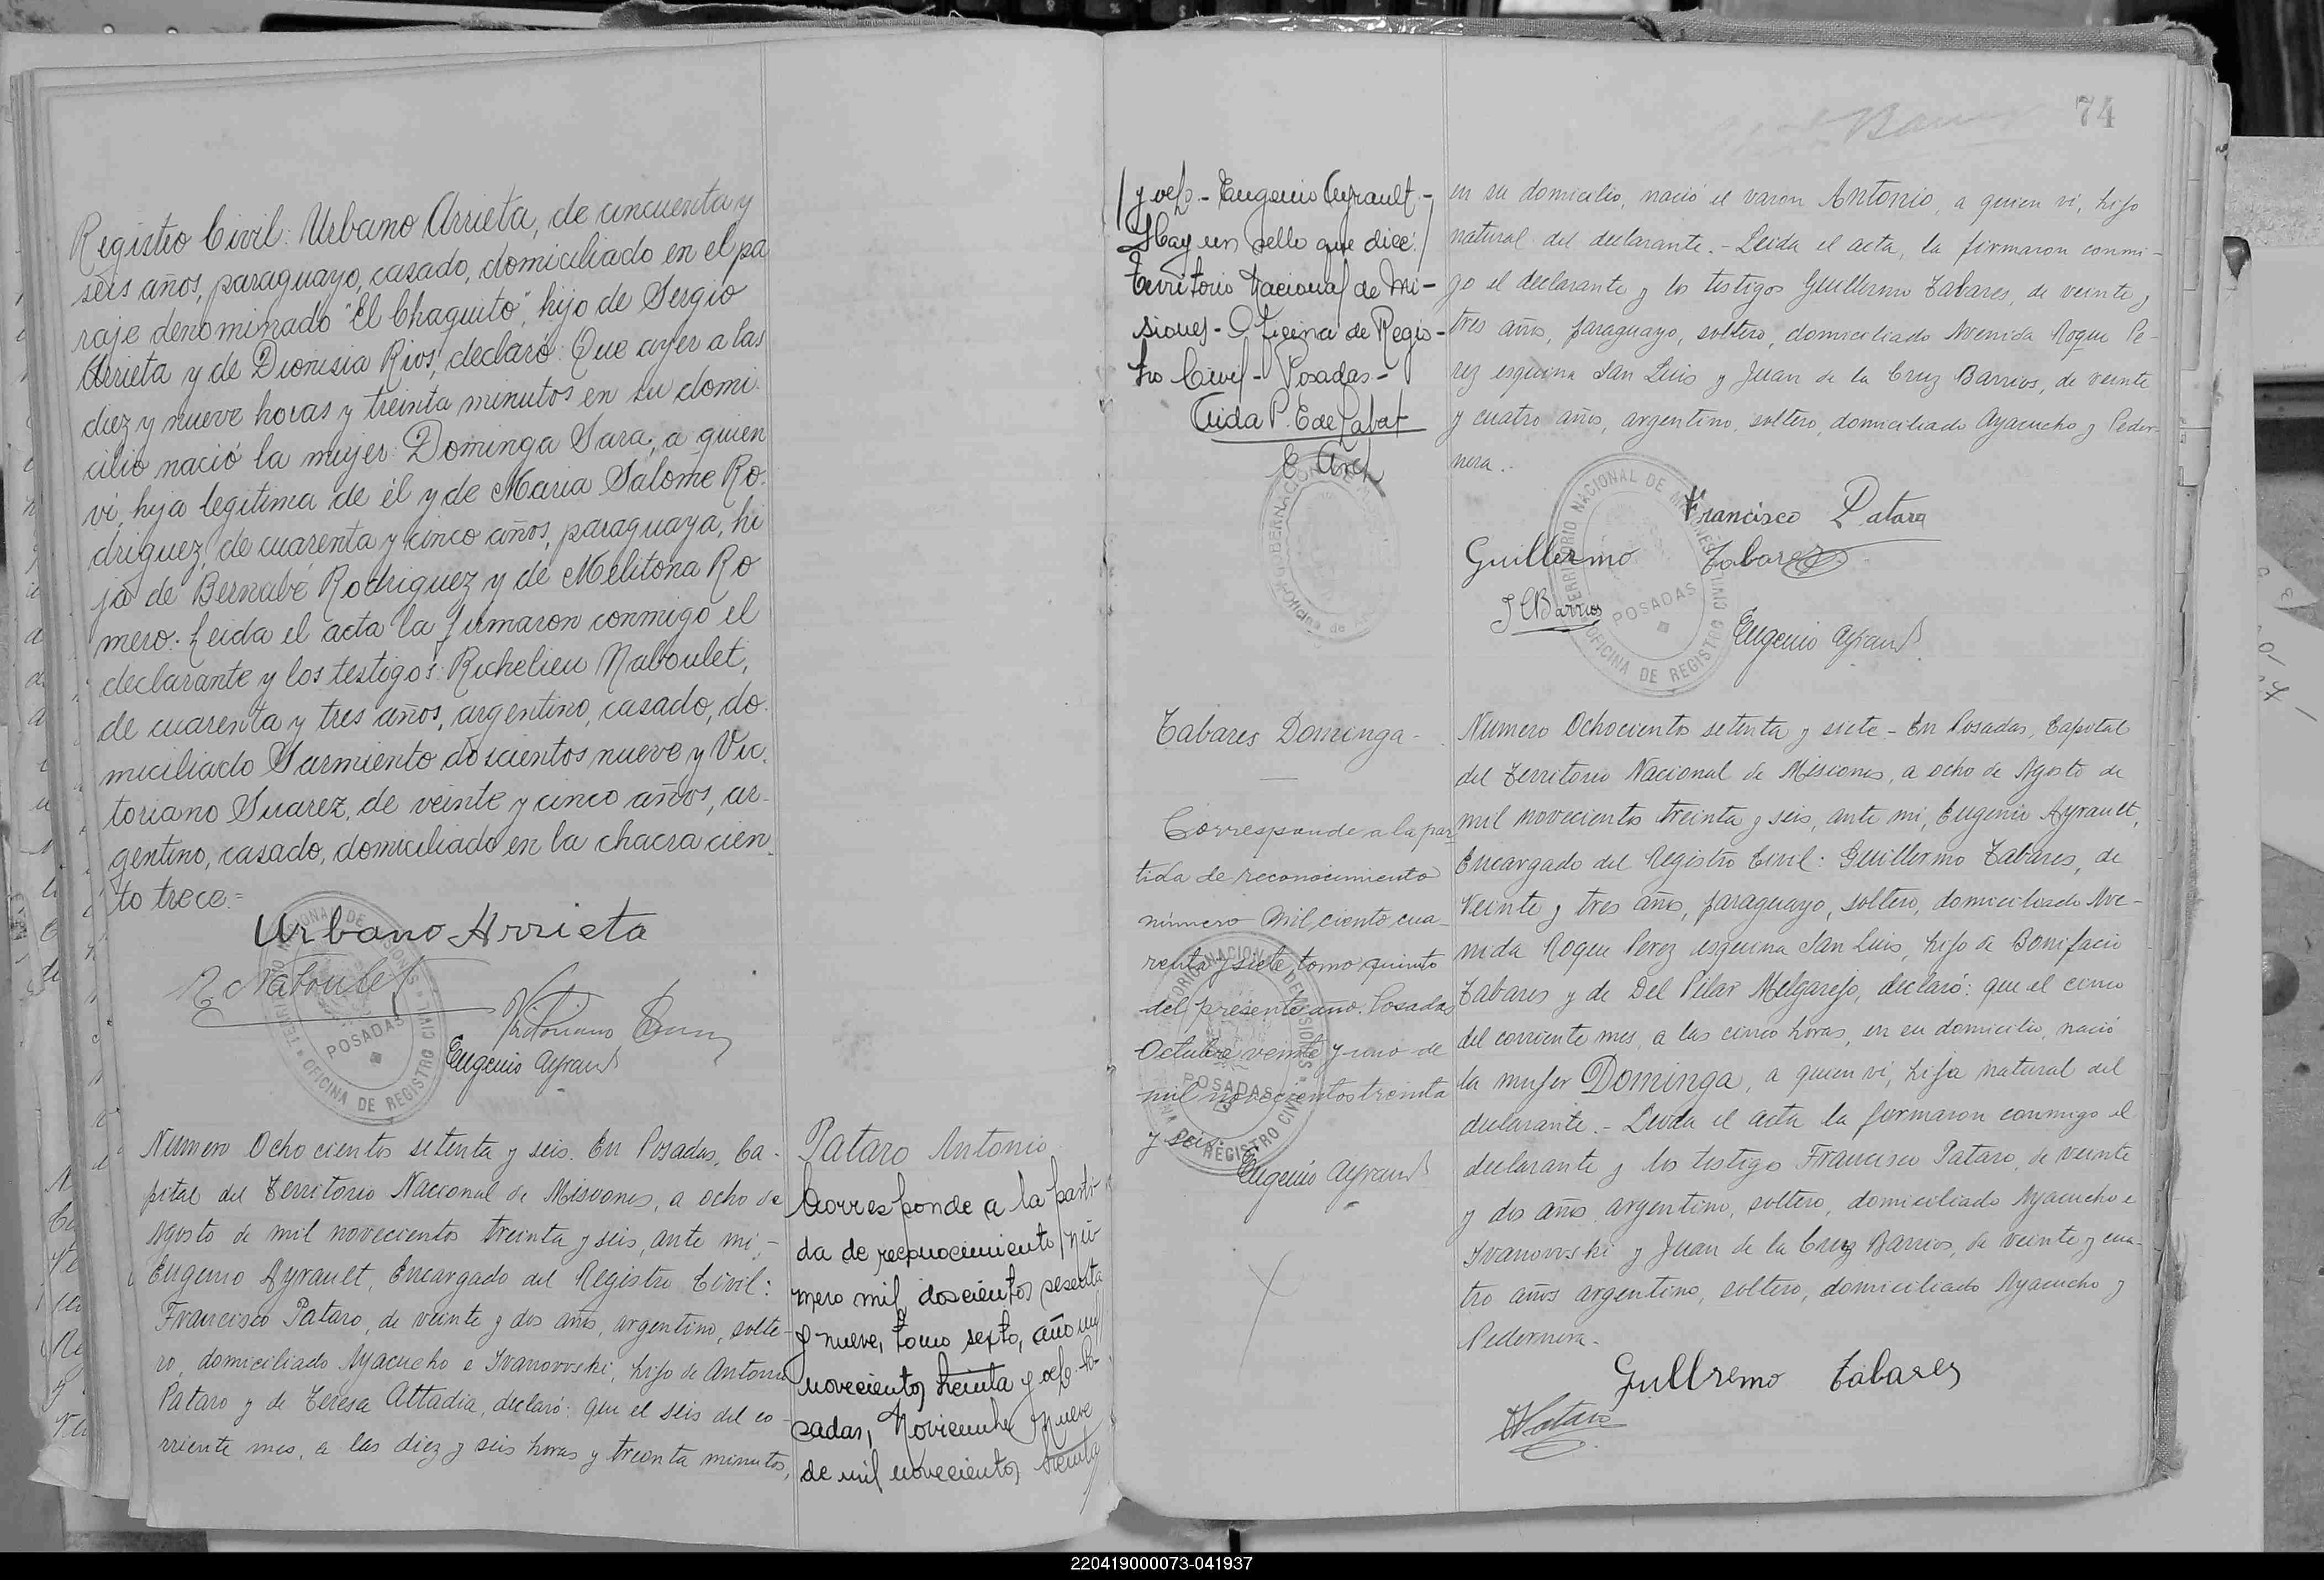 Registro Civil: Urbano Arrieta, de cincuenta y
seis años, paraguayo, casado, domiciliado en el pa
raje denominado "El Chaquito", hijo de Sergio
Arrieta y de Dionisia Rios, declaró: Que ayer a las
diez y nueve horas y treinta minutos en su domi
cilio nació la mujer: Dominga Sara, a quien
vi, hija legitima de él y de Maria Salome Ro.
driguez, de cuarenta y cinco años, paraguaya, hi
ja de Bernabé Rodriguez y de Melitona Ro
mero: Leida el acta la firmaron conmigo el
declarante y los testigos: Richelieu Naboulet,
de cuarenta y tres años, argentino, casado, do.
miciliado Sarmiento doscientos nueve y Vic.
toriano Suarez, de veinte y cinco años, ar.
gentino, casado, domiciliado en la chacra cien
to trece.=
Urbano Arrieta
R Naboulet
Victoriano
Eugenio Ayrault
TERRITORIO NACIONAL DE MISIONES
POSADAS
OFICINA DE REGISTRO CIVIL
Numero Ochocientos setenta y seis. En Posadas, Ca-
pital del Territorio Nacional de Misiones, a ocho de
Agosto de mil novecientos treinta y seis, ante mi,-
Eugenio Ayrault, Encargado del Registro Civil:
Francisco Pataro, de veinte y dos años, argentino, solte-
ro, domiciliado Ayacucho e Ivanowski, hijo de Antonio
Pataro y de Teresa Attadia, declaró: que el seis del co-
rriente mes, a las diez y seis horas y treinta minutos,
Pataro Antonio
Corresponde a la parti-
da de reconocimiento nú
mero mil doscientos sesenta
y nueve, tomo sexto, año mil
novecientos treinta y seis. Po-
sadas, Noviembre nueve
de mil novecientos treinta
74
y seis - Eugenio Ayrault -
Hay un sello que dice:
Territorio Nacional de Mi-
siones - Oficina de Regis-
tro Civil - Posadas -
Aida P. E de Labat
GOBERNACION
Oficina de
en su domicilio, nació el varon Antonio, a quien vi, hijo
natural del declarante.- Leida el acta, la firmaron conmi-
go el declarante y los testigos Guillermo Tabares, de veinte y
tres años, paraguayo, soltero, domiciliado Avenida Roque Pe-
rez esquina San Luis y Juan de la Cruz Barrios, de veinte
y cuatro años, argentino, soltero, domiciliado Ayacucho y Peder-
nera.
Francisco Pataro
Guillermo Tabares
J C Barrios
Eugenio Ayrault
TERRITORIO NACIONAL DE MISIONES
POSADAS
OFICINA DE REGISTRO CIVIL
Tabares Dominga -
Corresponde a la par
tida de reconocimiento
número Mil ciento cua-
renta y siete tomo quinto
del presente año. Posadas
Octubre veinte y uno de
mil novecientos treinta
y seis.
Eugenio Ayrault
TERRITORIO NACIONAL DE MISIONES
POSADAS
OFICINA DE REGISTRO CIVIL
Numero Ochocientos setenta y siete - En Posadas, Capital
del Territorio Nacional de Misiones, a ocho de Agosto de
mil novecientos treinta y seis, ante mi, Eugenio Ayrault,
Encargado del Registro Civil: Guillermo Tabares, de
veinte y tres años, paraguayo, soltero, domiciliado Ave-
nida Roque Perez esquina San Luis, hijo de Bonifacio
Tabares y de Del Pilar Melgarejo, declaró: que el cinco
del corriente mes, a las cinco horas, en su domicilio, nació
la mujer Dominga, a quien vi, hija natural del
declarante.- Leida el acta la firmaron conmigo el
declarante y los testigos Francisco Pataro, de veinte
y dos años, argentino, soltero, domiciliado Ayacucho e
Ivanowski y Juan de la Cruz Barrios, de veinte y cua-
tro años argentino, soltero, domiciliado Ayacucho y
Pedernera.
Gullremo Tabares
220419000073-041937